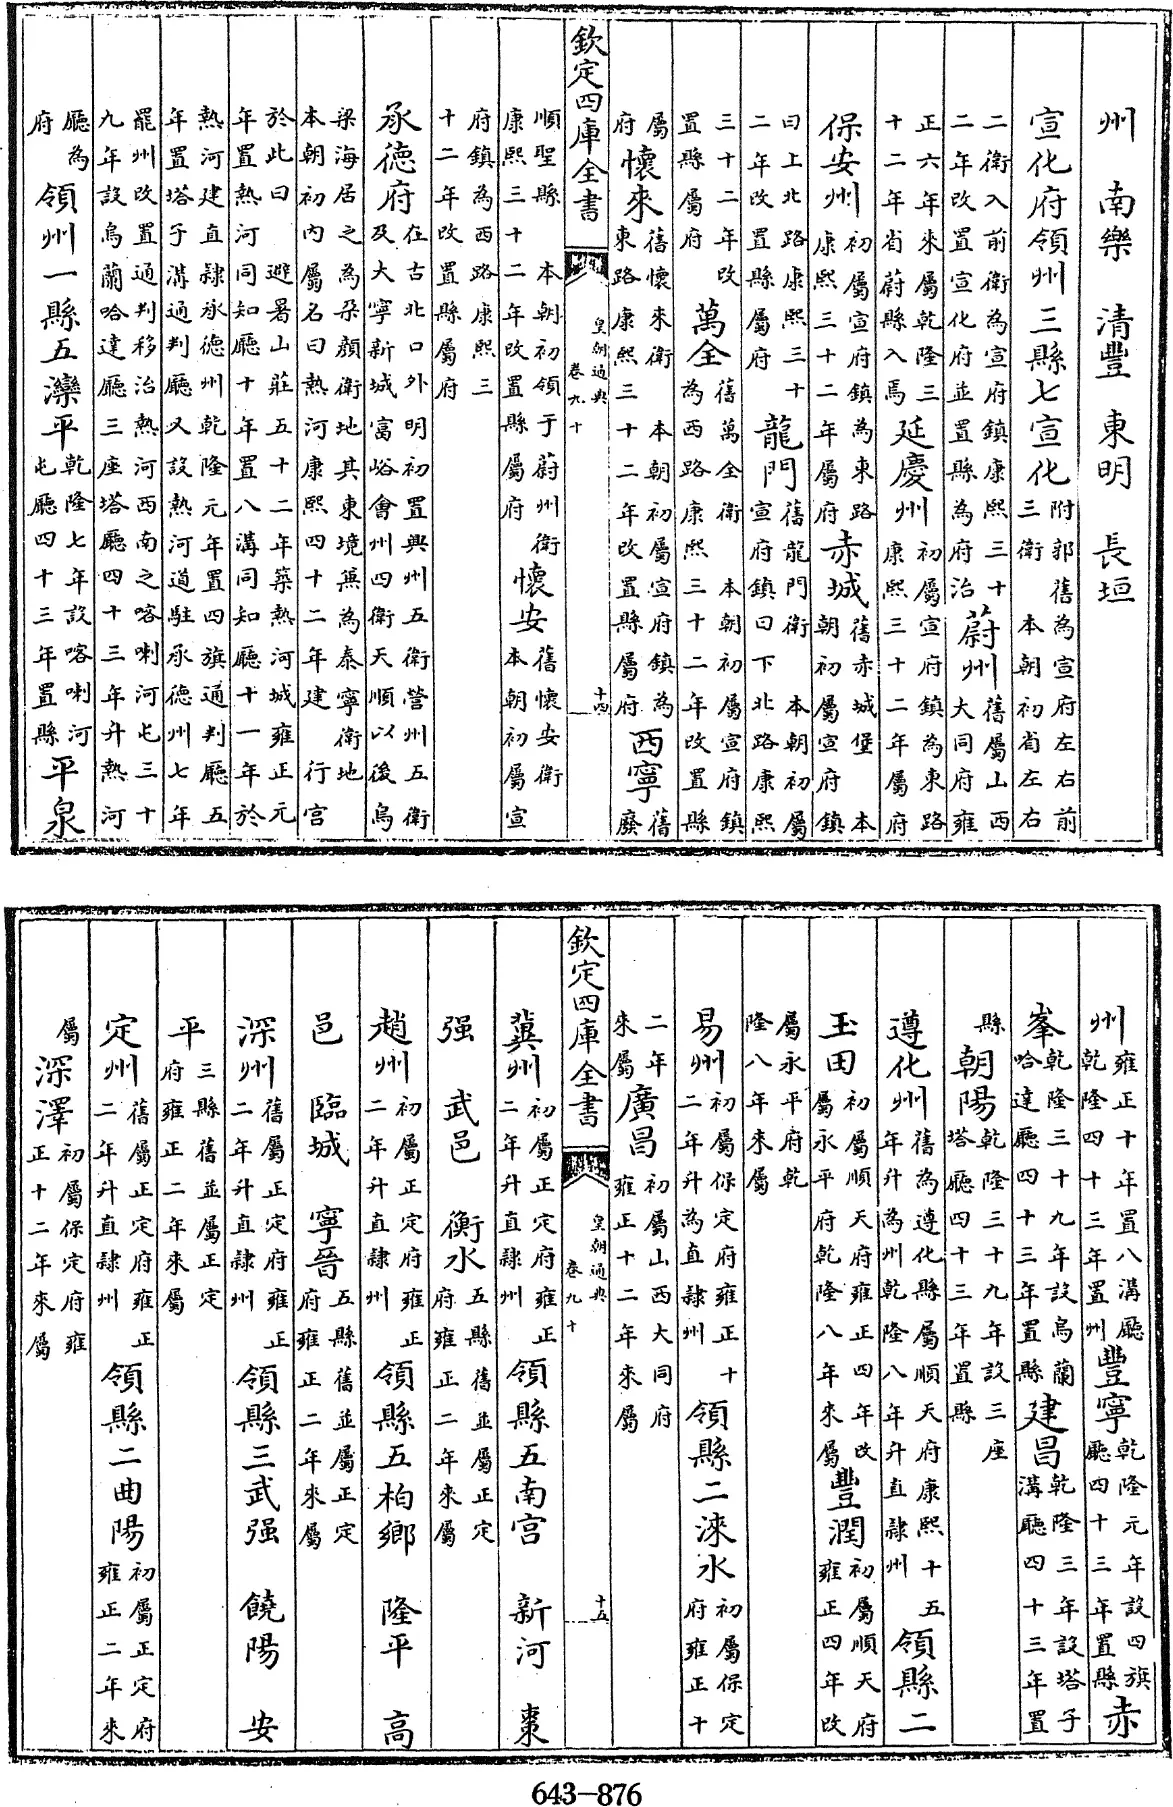 州 南樂 清豐 東明 長垣
宣化府領州三縣七宣化附郭舊為宣府左右前三衛 本朝初省左右
二衛入前衛為宣府鎮康熙三十二年改置宣化府並置縣為府治蔚州舊屬山西大同府雍
正六年來屬乾隆三十二年省蔚縣入焉延慶州初屬宣府鎮為東路康熙三十二年屬府
保安州初屬宣府鎮為東路康熙三十二年屬府赤城舊赤城堡 本朝初屬宣府鎮
曰上北路康熙三十二年改置縣屬府龍門舊龍門衛 本朝初屬宣府鎮曰下北路康熙
三十二年改置縣屬府萬全舊萬全衛 本朝初屬宣府鎮為西路康熙三十二年改置縣
屬府懷來舊懷來衛 本朝初屬宣府鎮為東路康熙三十二年改置縣屬府西寧舊廢
欽定四庫全書 皇朝通典 卷九十 十四
順聖縣 本朝初領于蔚州衛康熙三十二年改置縣屬府懷安舊懷安衛本朝初屬宣
府鎮為西路康熙三十二年改置縣屬府
承德府在古北口外明初置興州五衛營州五衛及大寧新城富峪會州四衛天順以後烏
梁海居之為朵顏衛地其東境兼為泰寧衛地本朝初內屬名曰熱河康熙四十二年建 行宮
於此曰 避暑山莊五十二年築熱河城雍正元年置熱河同知廳十年置八溝同知廳十一年於
熱河建直隸承德州乾隆元年置四旗通判廳五年置塔子溝通判廳又設熱河道駐承德州七年
罷州改置通判移治熱河西南之喀喇河屯三十九年設烏蘭哈達廳三座塔廳四十三年升熱河
廳為府領州一縣五灤平乾隆七年設喀喇河屯廳四十三年置縣平泉
州雍正十年置八溝廳乾隆四十三年置州豐寧乾隆元年設四旗廳四十三年置縣赤
峯乾隆三十九年設烏蘭哈達廳四十三年置縣建昌乾隆三年設塔子溝廳四十三年置
縣朝陽乾隆三十九年設三座塔廳四十三年置縣
遵化州舊為遵化縣屬順天府康熙十五年升為州乾隆八年升直隸州領縣二
玉田初屬順天府雍正四年改屬永平府乾隆八年來屬豐潤初屬順天府雍正四年改
屬永平府乾隆八年來屬
易州初屬保定府雍正十二年升為直隸州領縣二淶水初屬保定府雍正十
二年來屬廣昌初屬山西大同府雍正十二年來屬
欽定四庫全書 皇朝通典 卷九十 十五
冀州初屬正定府雍正二年升直隸州領縣五南宮 新河 棗
强 武邑 衡水五縣舊並屬正定府雍正二年來屬
趙州初屬正定府雍正二年升直隸州領縣五柏鄉 隆平 高
邑 臨城 寧晉五縣舊並屬正定府雍正二年來屬
深州舊屬正定府雍正二年升直隸州領縣三武强 饒陽 安
平三縣舊並屬正定府雍正二年來屬
定州舊屬正定府雍正二年升直隸州領縣二曲陽初屬正定府雍正二年來
屬深澤初屬保定府雍正十二年來屬
643-876